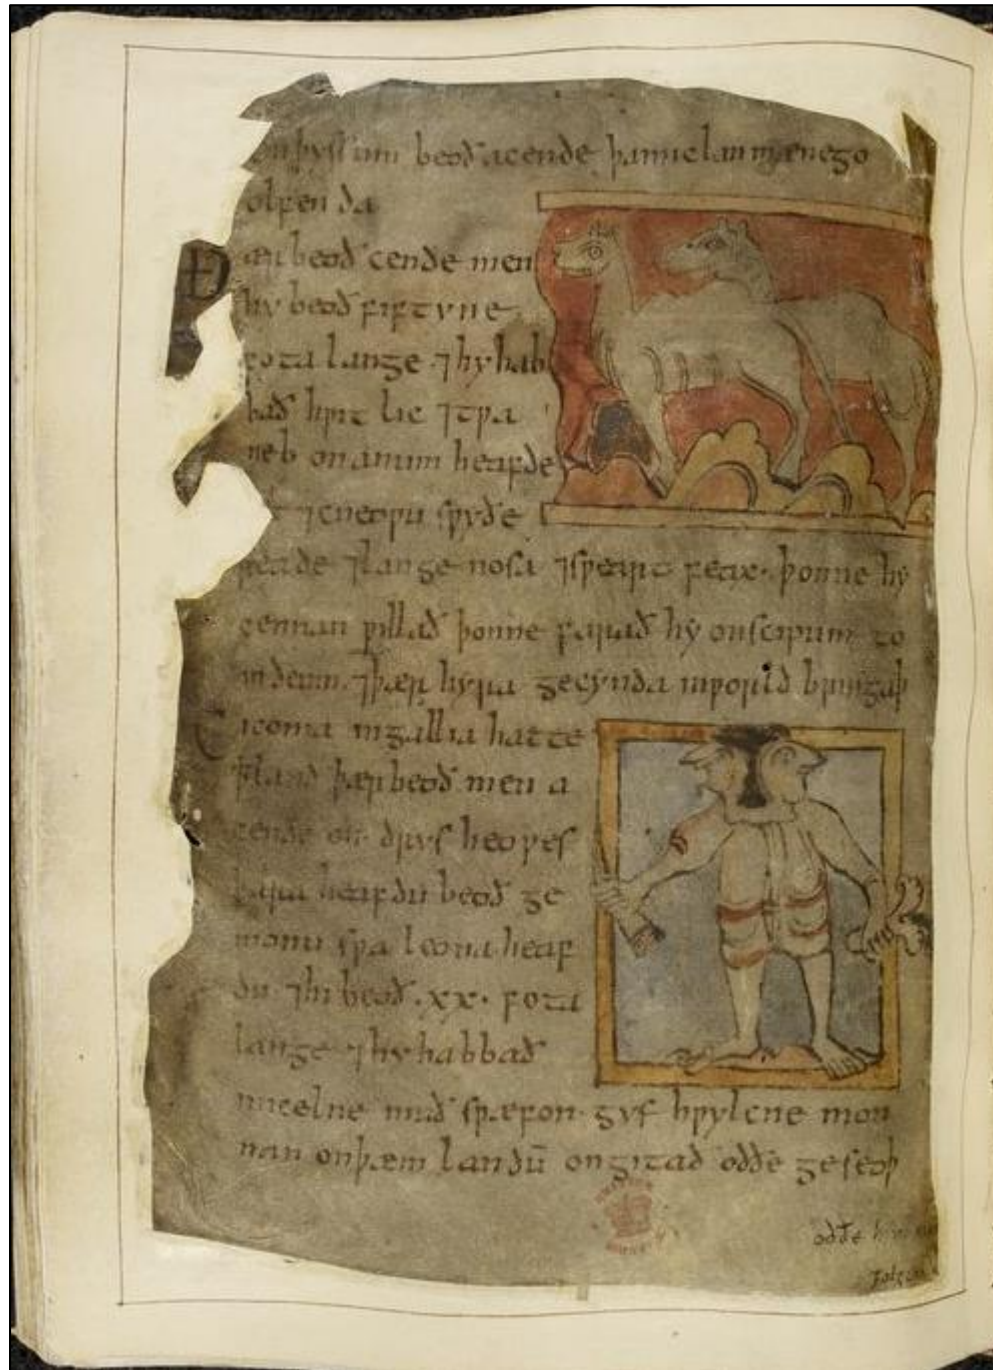 on þyssum beoð acende þa miclan mænego
olfenda
Ðær beoð cende men
hy beoð fiftyne
fota lange ⁊ hy hab
bað hƿit lic ⁊ tƿa
neb on anum heafde
⁊ cneoƿu sƿyðe
reade ⁊ lange nosa ⁊ sƿeart feax. þonne hy
cennan ƿillað þonne farað hy on scipum to
indeum. ⁊ þær hyra gecynda in ƿorold bringaþ
Ciconia in gallia hatte
þ land þær beoð men a
cende on drys heoƿes
þara heafdu beoð ge
monu sƿa leona heaf
du ⁊ hi beoð .xx. fota
lange ⁊ hy habbað
micelne muð sƿa fon. gyf hƿylcne mon
nan on þæm landū ongitað oððe geseoþ
oððe